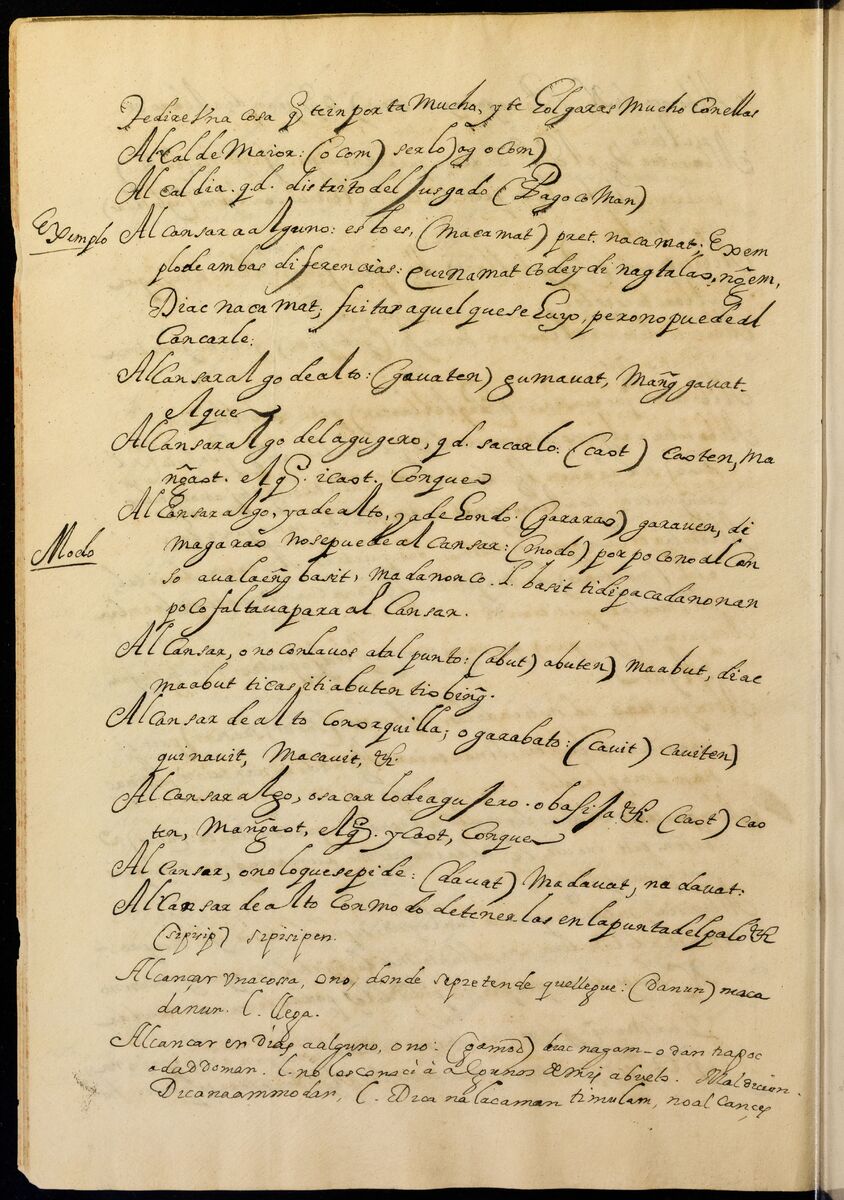 Te dire Vna cosa q̃ te inporta Mucho, y te Eolgaras Mucho Con ellas
Alcalde Maior: (ocom) ser lo) ag ocom)
Alcaldia. q.d. distrito del Jusgado (Pagocoman)
Exemplo
Alcansar a alguno: esto es, (macamat) pret. nacamat. Exem
plo de ambas diferencias: quinamat co dey di nagtalao, nḡem,
Diac nacamat; fuitas aquel que se Euyo, pero no puede al
Cancarle.
Alcansar algo de alto: (gavaten) gumavat, Manḡ gavat.
el que
Alcansar algo del agugero, q.d. sacarlo: (caot) caoten, ma
nḡaot. el q̃. icaot. Conque
Alcansar algo, ya de alto, ya de Eondo. (gararao) garaven, di
magarao no se puede alcansar: (modo) por poco no alcan
Modo
so avalaenḡ basit, madanonco. l. basit ti di pacadanonan
poco faltava para alcansar.
Alcansar, o no con la vos atal punto: (abut) abuten) maabut, diac
maabut ticasitiabuten tiobinḡ.
Alcansar de alto con orquilla; o garabato: (cavit) caviten)
quinavit, Macavit, &.
Alcansar algo, o sacarlo de agujero. o basija &. (caot) cao
ten, Manḡaot, el q̃. y caot, Conque
Alcansar, o no lo que se pide: (davat) Madavat, nadavat.
Alcansar de alto con modo detenerlas en la punta del palo &
(sipisip) sipisipen.
Alcançar vna cossa, o no, donde se pretende que llegue: (danun) maca
danun. l. llega.
Alcançar en dias a alguno, o no: diac nagam-odan tiapoc
adaddoman. l. no los conoci à algunos de mis abuelo. Maldicion.
Dicanaammodan, l. Dica nalacaman timulam, no al cançes